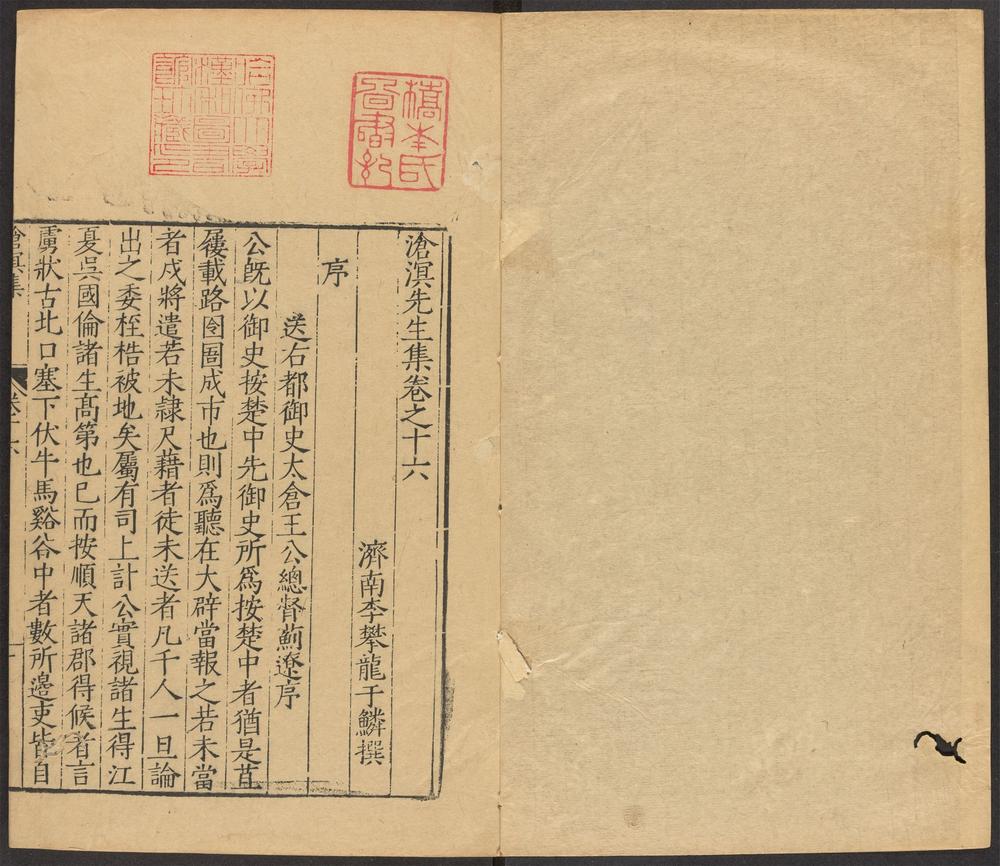 滄溟先生集卷之十六
濟南李攀龍于鱗撰
序
送右都御史太倉王公總督薊遼序
公旣以御史按楚中先御史所爲按楚中者猶是苴
屨載路囹圄成市也則爲聽在大辟當報之若未當
者戍將遣若未隷尺藉者徒未送者凡千人一旦論
出之委桎梏被地矣屬有司上計公實視諸生得江
夏吳國倫諸生髙第也已而按順天諸郡得候者言
虜狀古北口塞下伏牛馬谿谷中者數所邊吏皆自
滄溟集
卷十六
一
橋李氏
圖書